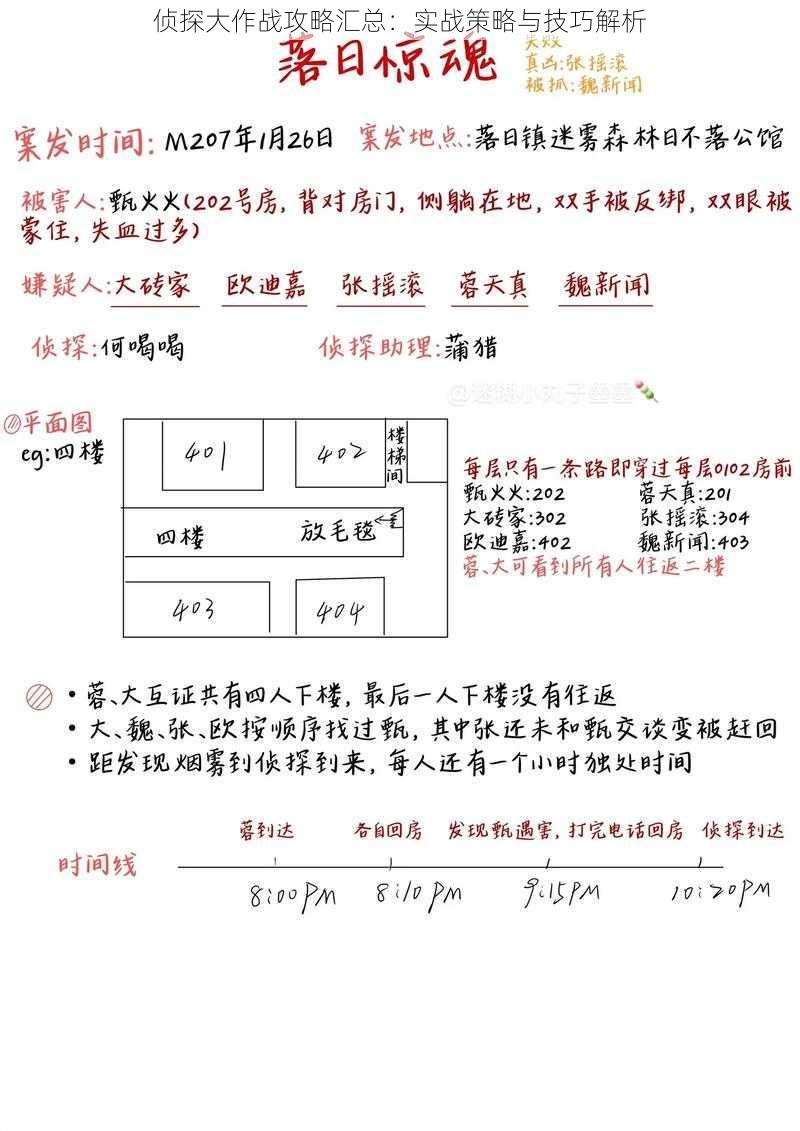 侦探大作战攻略汇总：实战策略与技巧解析
落日惊魂
失败
真凶:张摇滚
被抓:魏新闻
案发时间:M207年1月26日 案发地点:落日镇迷雾森林日不落公馆
被害人:甄火火(202号房，背对房门，侧躺在地，双手被反绑，双眼被
蒙住，失血过多)
嫌疑人:大砖家 欧迪嘉 张摇滚 蓉天真 魏新闻
侦探:何喝喝 侦探助理:蒲猎
平面图
eg:四楼
401
402
楼梯间
四楼
放毛毯
403
404
每层只有一条路即穿过每层0102房前
甄火火:202 蓉天真:201
大砖家:302 张摇滚:304
欧迪嘉:402 魏新闻:403
蓉、大可看到所有人往返二楼
• 蓉、大互证共有四人下楼，最后一人下楼没有往返
• 大、魏、张、欧按顺序找过甄，其中张还未和甄交谈变被赶回
• 距发现烟雾到侦探到来，每人还有一个小时独处时间
蓉到达 各自回房 发现甄遇害，打完电话回房 侦探到达
时间线
8:00PM 8:10PM 9:15PM 10:20PM